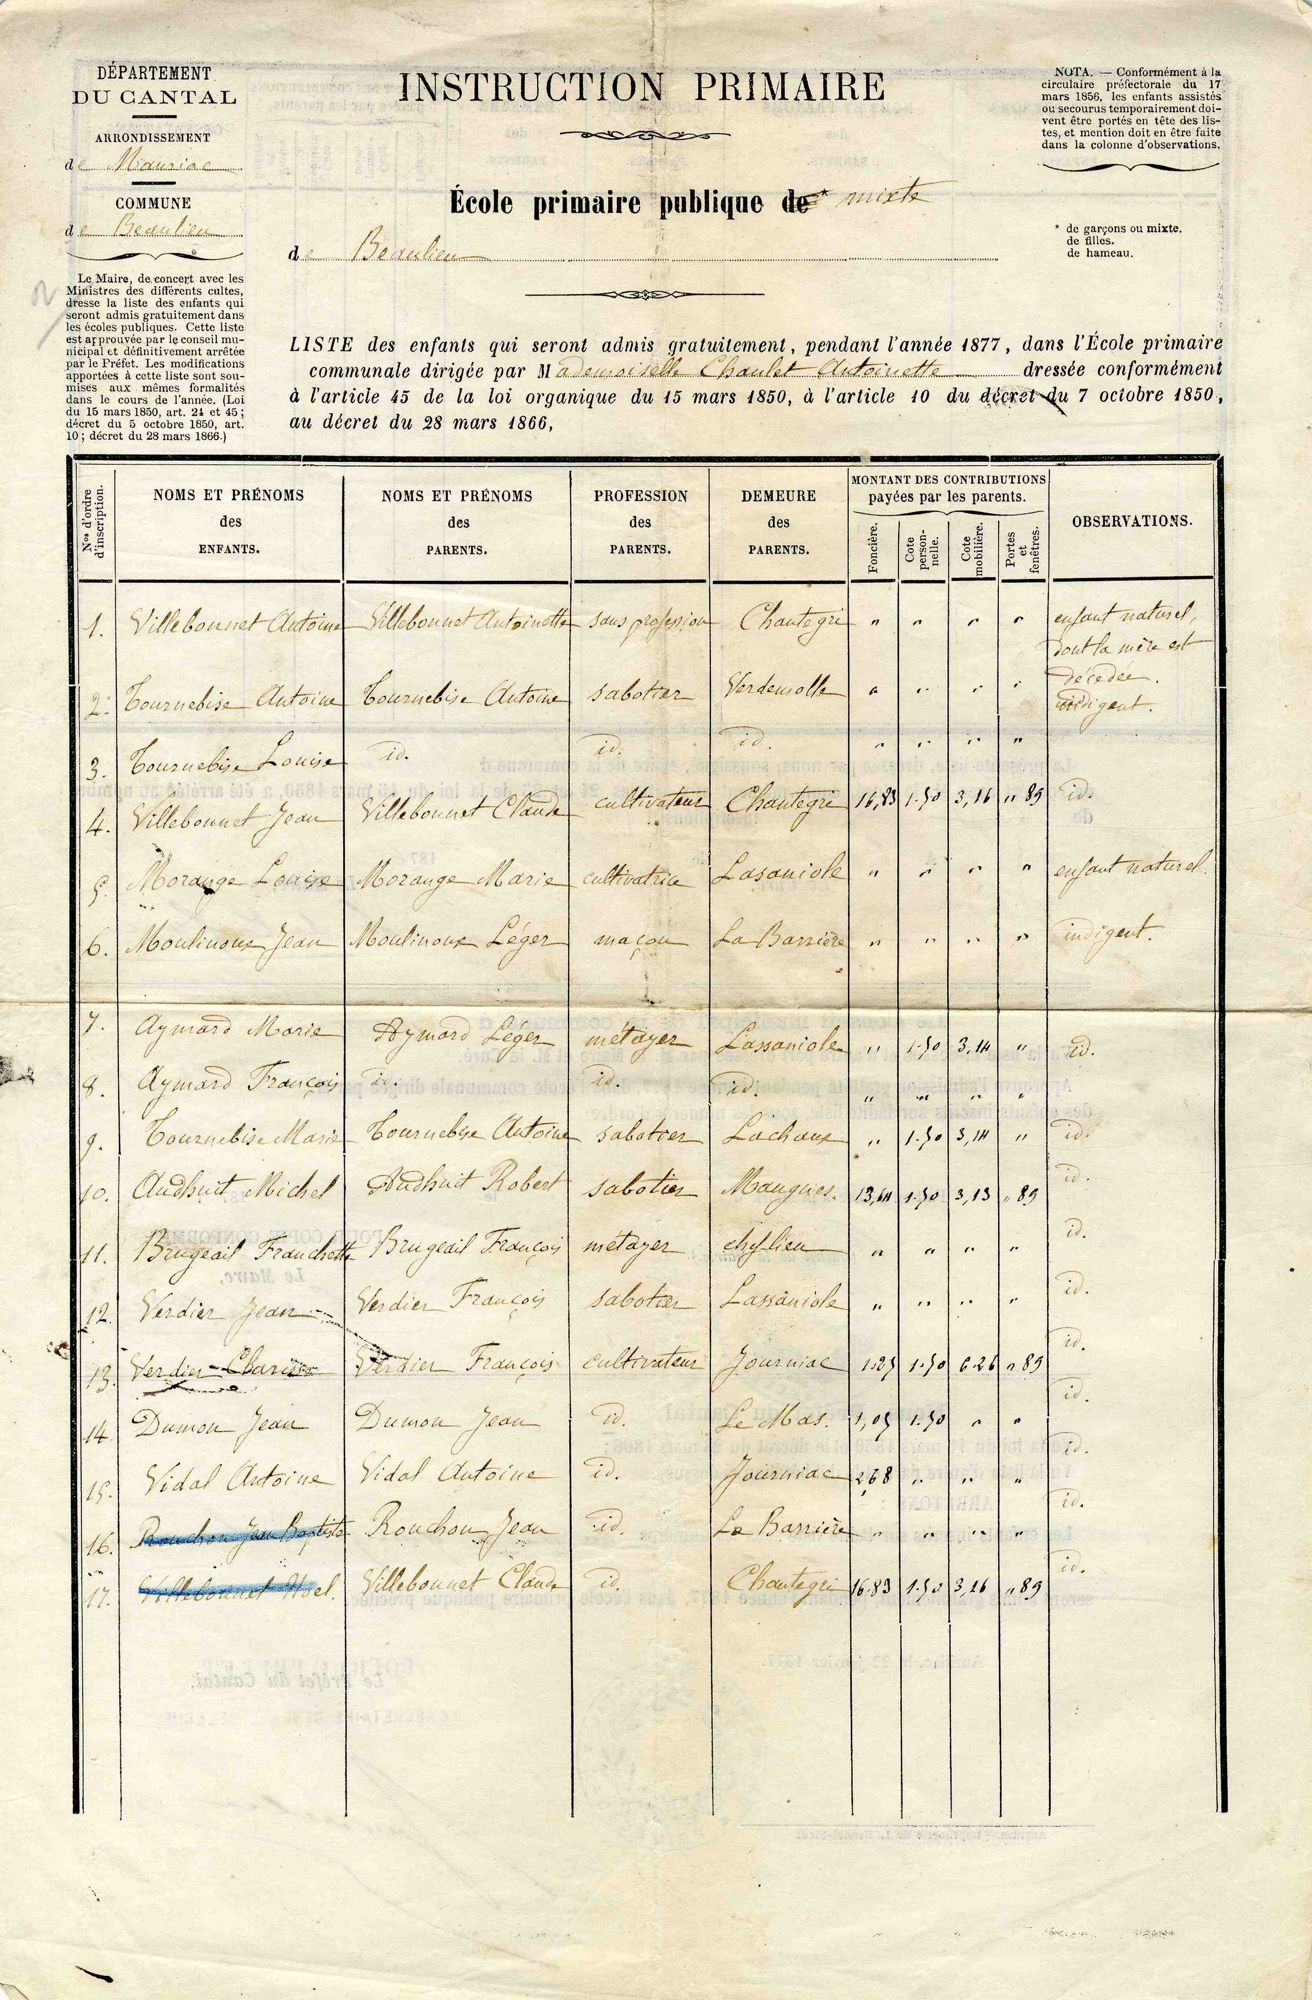 DÉPARTEMENT
DU CANTAL
ARRONDISSEMENT
de Mauriac
COMMUNE
de Beaulieu
Le Maire, de concert avec les
Ministres des différents cultes,
dresse la liste des enfants qui
seront admis gratuitement dans
les écoles publiques. Cette liste
est approuvée par le conseil mu-
nicipal et définitivement arrêtée
par le Préfet. Les modifications
apportées à cette liste sont sou-
mises aux mêmes formalités
dans le cours de l'année. (Loi
du 15 mars 1850, art. 24 et 45;
décret du 5 octobre 1850, art.
10; décret du 28 mars 1866.)
INSTRUCTION PRIMAIRE
École primaire publique de * mixte
de Beaulieu
NOTA. — Conformément à la
circulaire préfectorale du 17
mars 1856, les enfants assistés
ou secourus temporairement doi-
vent être portés en tête des lis-
tes, et mention doit en être faite
dans la colonne d'observations.
* de garçons ou mixte.
de filles.
de hameau.
LISTE des enfants qui seront admis gratuitement, pendant l'année 1877, dans l'École primaire
communale dirigée par Mademoiselle Chaulet Antoinette dressée conformément
à l'article 45 de la loi organique du 15 mars 1850, à l'article 10 du décret du 7 octobre 1850,
au décret du 28 mars 1866,
Nos d'ordre d'inscription.
NOMS ET PRÉNOMS des ENFANTS.
NOMS ET PRÉNOMS des PARENTS.
PROFESSION des PARENTS.
DEMEURE des PARENTS.
MONTANT DES CONTRIBUTIONS payées par les parents.
Foncière.
Cote person-nelle.
Cote mobilière.
Portes et fenêtres.
OBSERVATIONS.
1. Villebonnet Antoine Villebonnet Antoinette sans profession Chantegri " " " " enfant naturel,
dont la mère est
décédée.
2. Tournebise Antoine Tournebise Antoine sabotier Verdemolle " " " " indigent.
3. Tournebise Louise id. id. id. " " " "
4. Villebonnet Jean Villebonnet Claude cultivateur Chantegri 16,83 1.50 3,16 " 89 id.
5. Morange Louise Morange Marie cultivatrice Lasaniole " " " " enfant naturel.
6. Moulinoux Jean Moulinoux Léger maçon La Barrière " " " " indigent.
7. Aymard Marie Aymard Léger métayer Lassaniole " 1.50 3,14 " id.
8. Aymard François id. id. id. " " " "
9. Tournebise Marie Tournebise Antoine sabotier Lachaux " 1.50 3,14 " id.
10. Audhuit Michel Audhuit Robert sabotier Mangues. 13,64 1.50 3,13 " 89 id.
11. Brugeail Franchette Brugeail François métayer " " " " id.
12. Verdier Jean Verdier François sabotier Lassaniole " " " " id.
13. Verdier Clarisse Verdier François cultivateur Journiac 1.25 1.50 6.26 " 89 id.
14. Dumon Jean Dumon Jean id. Le Mas. 1,05 1.50 " " id.
15. Vidal Antoine Vidal Antoine id. Journiac 2,68 " " " id.
16. Rouchon Jean Baptiste Rouchon Jean id. La Barrière " " " " id.
17. Villebonnet Noel. Villebonnet Claude id. Chantegri 16.83 1.50 3,26 " 89 id.